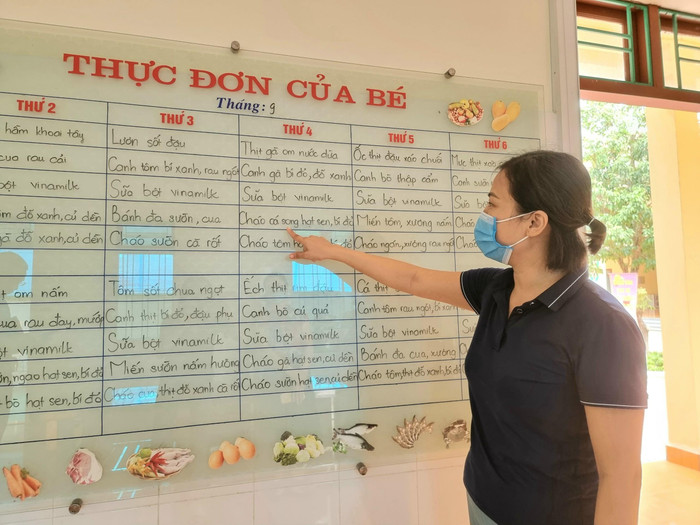 THỰC ĐƠN CỦA BÉ
Tháng: 9
THỨ 2 THỨ 3 THỨ 4 THỨ 5 THỨ 6
hầm khoai tây Lươn sốt đậu Thịt gà om nước dừa Ốc thịt đậu xào chuối Mực thịt xào
cua rau cải Canh tôm bí xanh, rau ngót Canh gà bí đỏ, đỗ xanh Canh bò thập cẩm Canh sườn
bột vinamilk Sữa bột vinamilk Sữa bột vinamilk Sữa bột vinamilk Sữa
đỗ xanh, củ dền Bánh đa sườn, cua Cháo cá song hạt sen, bí đỏ Miến tôm, xương nấm Cháo
gà đỗ xanh, củ dền Cháo sườn cà rốt Cháo tôm bí đỏ Cháo ngán, xương rau ngót Cháo
om nấm Tôm sốt chua ngọt Ếch thịt om đậu Cá thịt
cua rau đay, mướp Canh thịt bí đỏ, đậu phụ Canh bò củ quả Canh tôm rau ngót, bí
bột vinamilk Sữa bột vinamilk Sữa bột vinamilk Sữa bột vinamilk
ngao hạt sen, bí đỏ Miến sườn nấm hương Cháo gà hạt sen, củ dền Bánh đa cua, xương
bò hạt sen, bí đỏ Cháo thịt đỗ xanh cà rốt Cháo sườn hạt sen, củ dền Cháo tôm, thịt đỗ xanh, bí